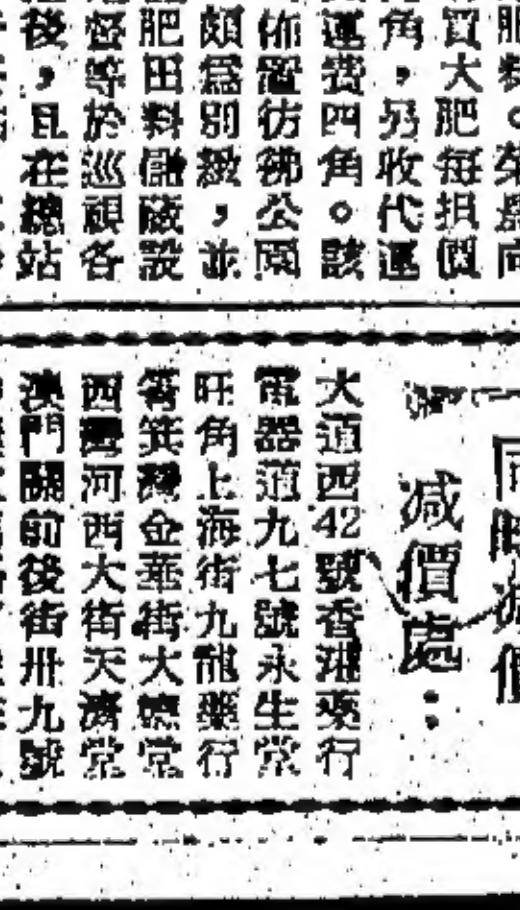 買大肥每担價
角，另收代運
運費四角。該
佈置彷彿公園
頗為別緻，並
肥田料儲廠設
督等於巡視各
後，且在總站
減價處：
大道西42號香港藥行
電器道九七號永生堂
旺角上海街九龍藥行
筲箕灣金華街大德堂
西灣河西大街天濟堂
澳門關前後街卅九號